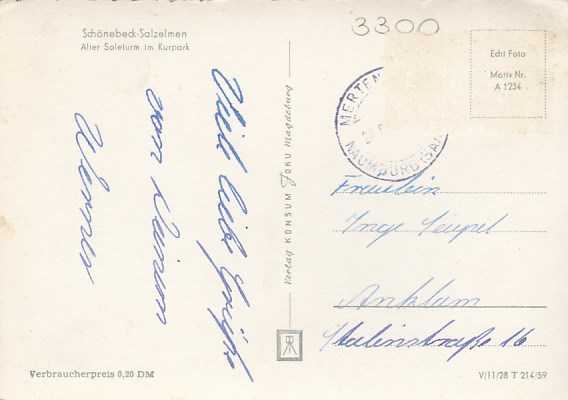 3300
Schönebeck-Salzelmen
Alter Soleturm im Kurpark
Echt Foto
Motiv Nr.
A 1234
MERTEN
NAUMBURG (SAA
Viele liebe Grüße
von Deinem
Werner
Verlag KONSUM FOKU Magdeburg
Fräulein
Inge Seupel
Anklam
Stalinstraße 16
Verbraucherpreis 0,20 DM
V/11/28 T 214/59